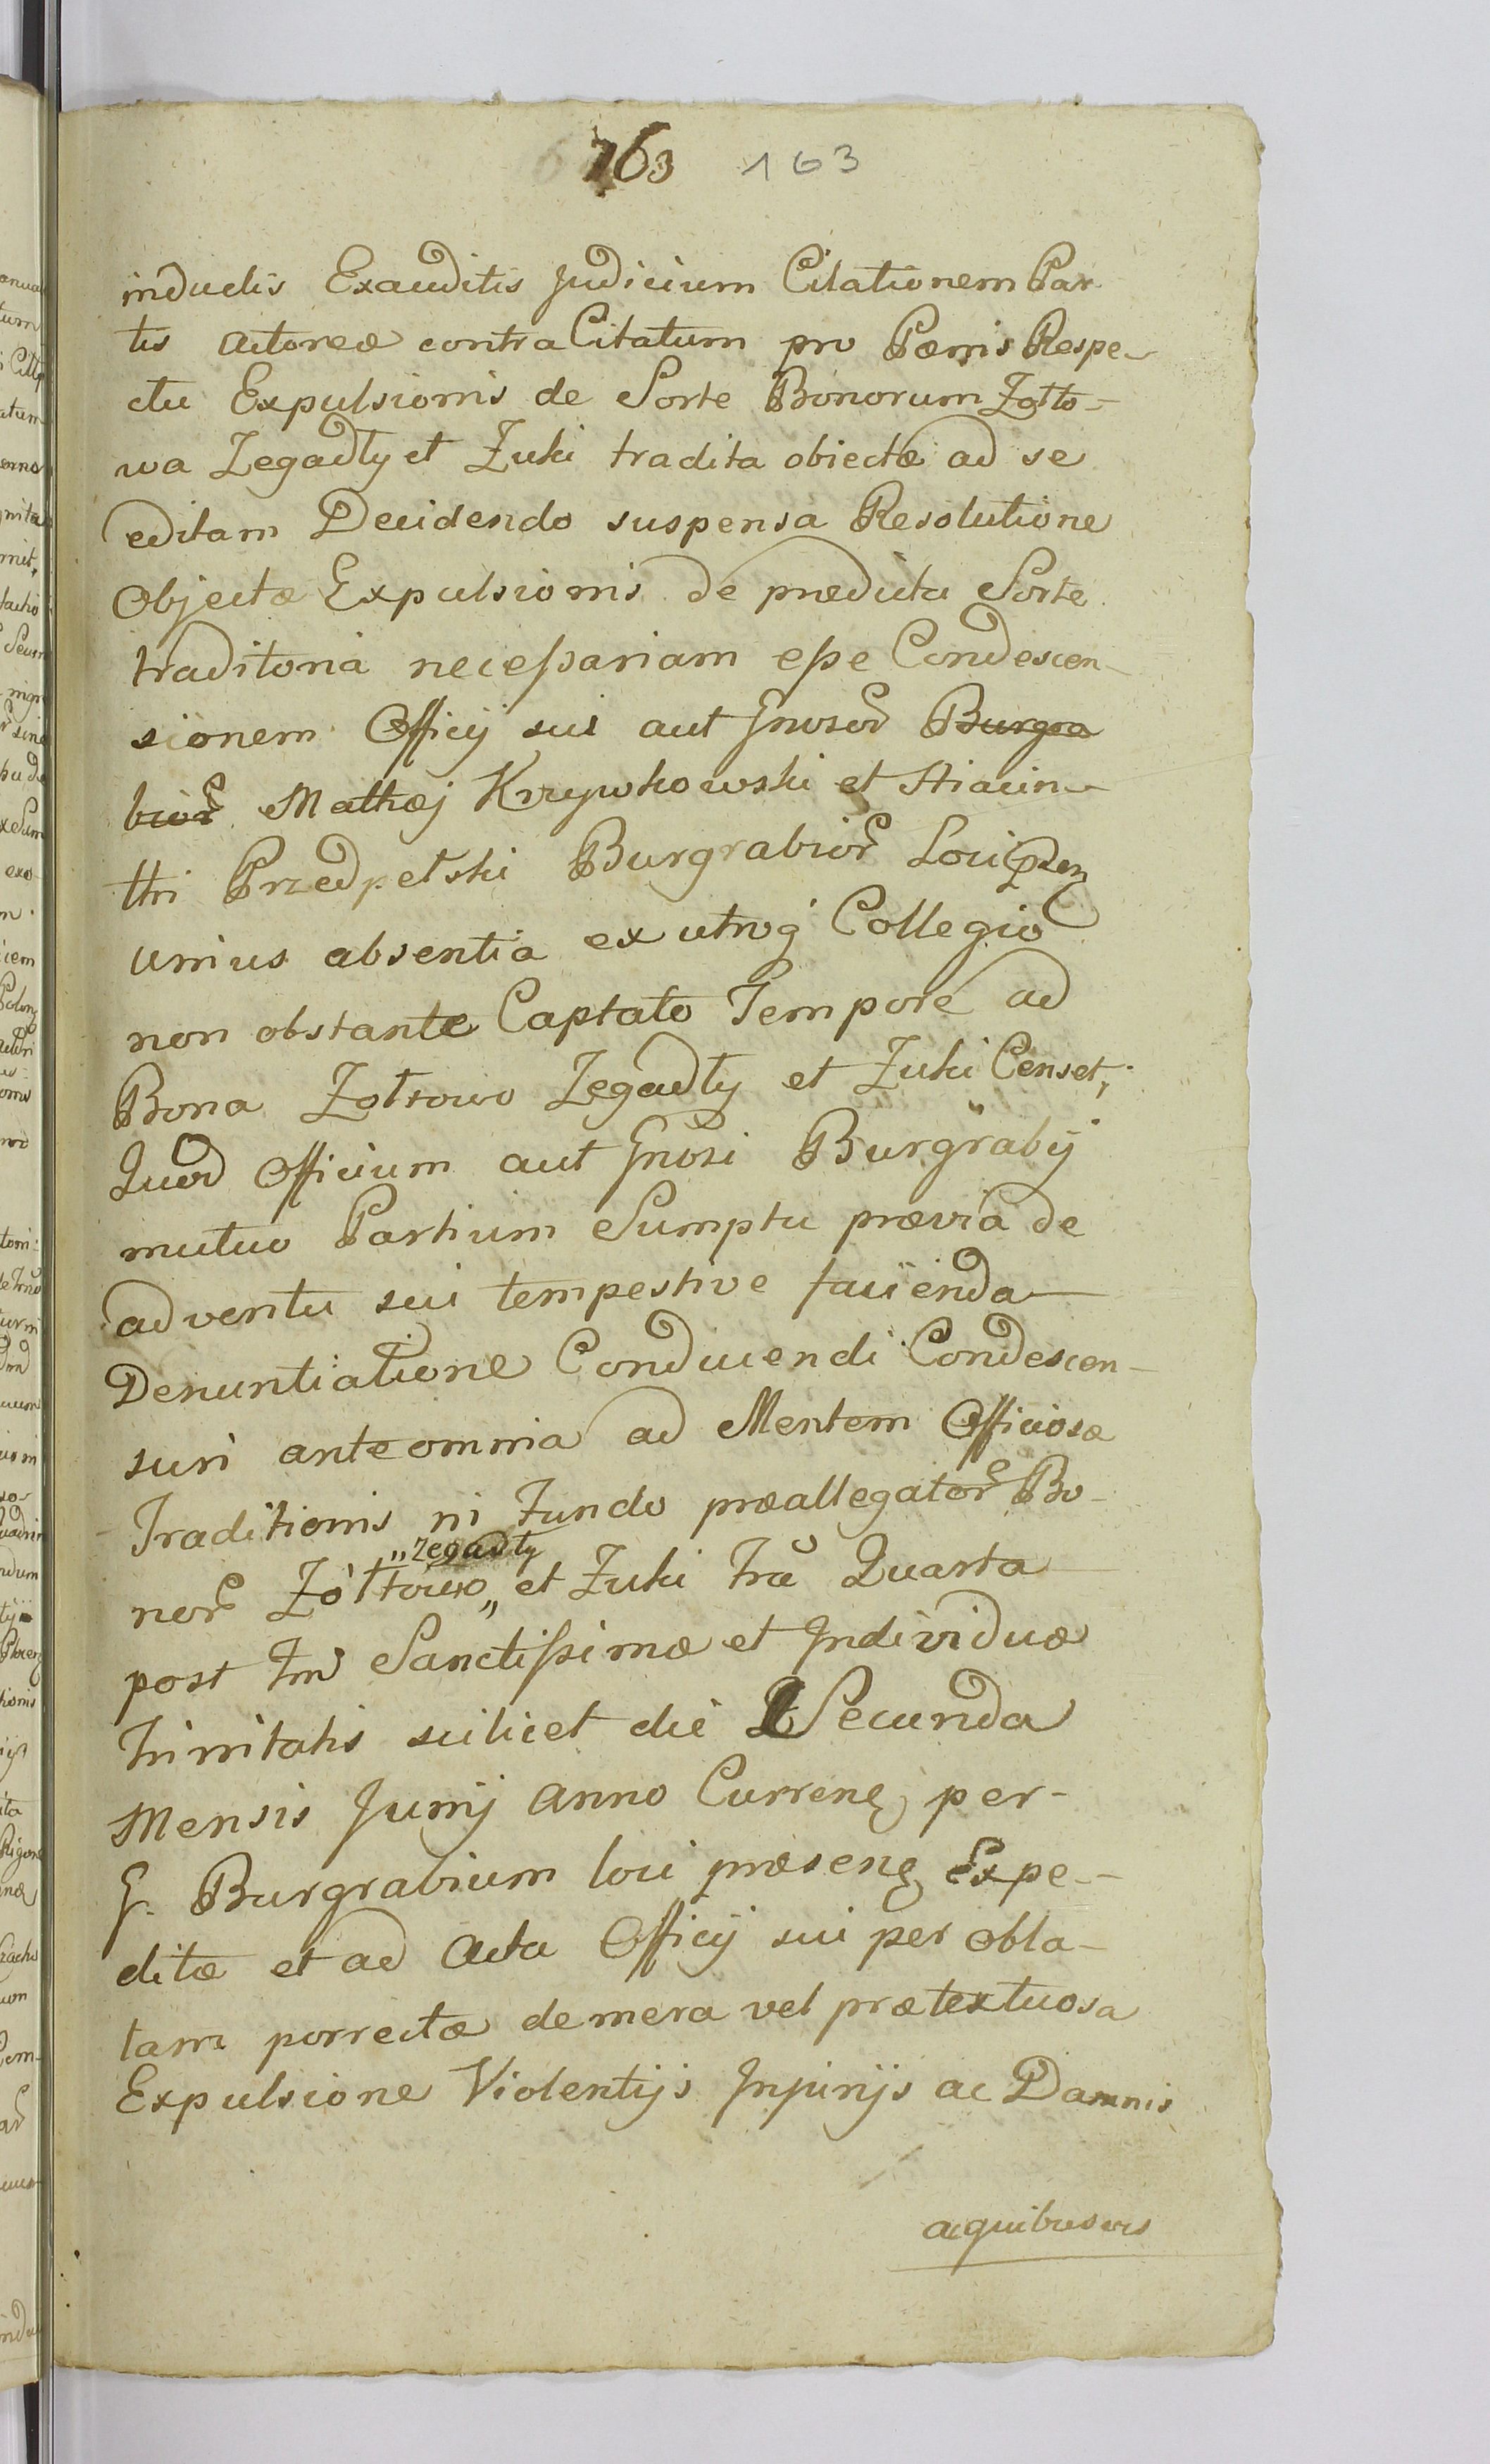 163 163
inductis Exauditis Judicium Citationem Par
tis Actoreæ contra Citatum pro Pœnis Respe-
ctu Expulsionis de Sorte Bonorum Zołto-
wa Zegadły et Zuki tradita obiectæ ad se
editam Decidendo suspensa Resolutione
Objectæ Expulsionis de prædicta Sorte
traditoria necessariam esse Condescen-
sionem Officij sui aut Gnosor Burgra
bior Mathæj Krzywkowski et Hiacin-
thi Przedpełski Burgrabior Loci præn
unius absentia ex utroq Collegio
non obstante Captato Tempore ad
Bona Zołtowo Zegadły et Zuki Censet,
Quod Officium aut Gnosi Burgrabij
mutuo Partium Sumptu prævia de
adventu sui tempestive facienda
Denuntiatione Conducendi Condescen-
suri ante omnia ad Mentem Officiosæ
Traditionis in Fundo præallegator Bo-
nor Zołtowo „Zegadły„ et Zuki Fra Quarta
post Fm Sanctissimæ et Individuæ
Trinitatis scilicet die Secunda
Mensis Junij Anno Curren per-
G. Burgrabium loci præsen Expe-
ditæ et ad Acta Officij sui per obla-
tam porrectæ de mera vel prætextuosa
Expulsione Violentijs Injurijs ac Damnis
ac quibusvis